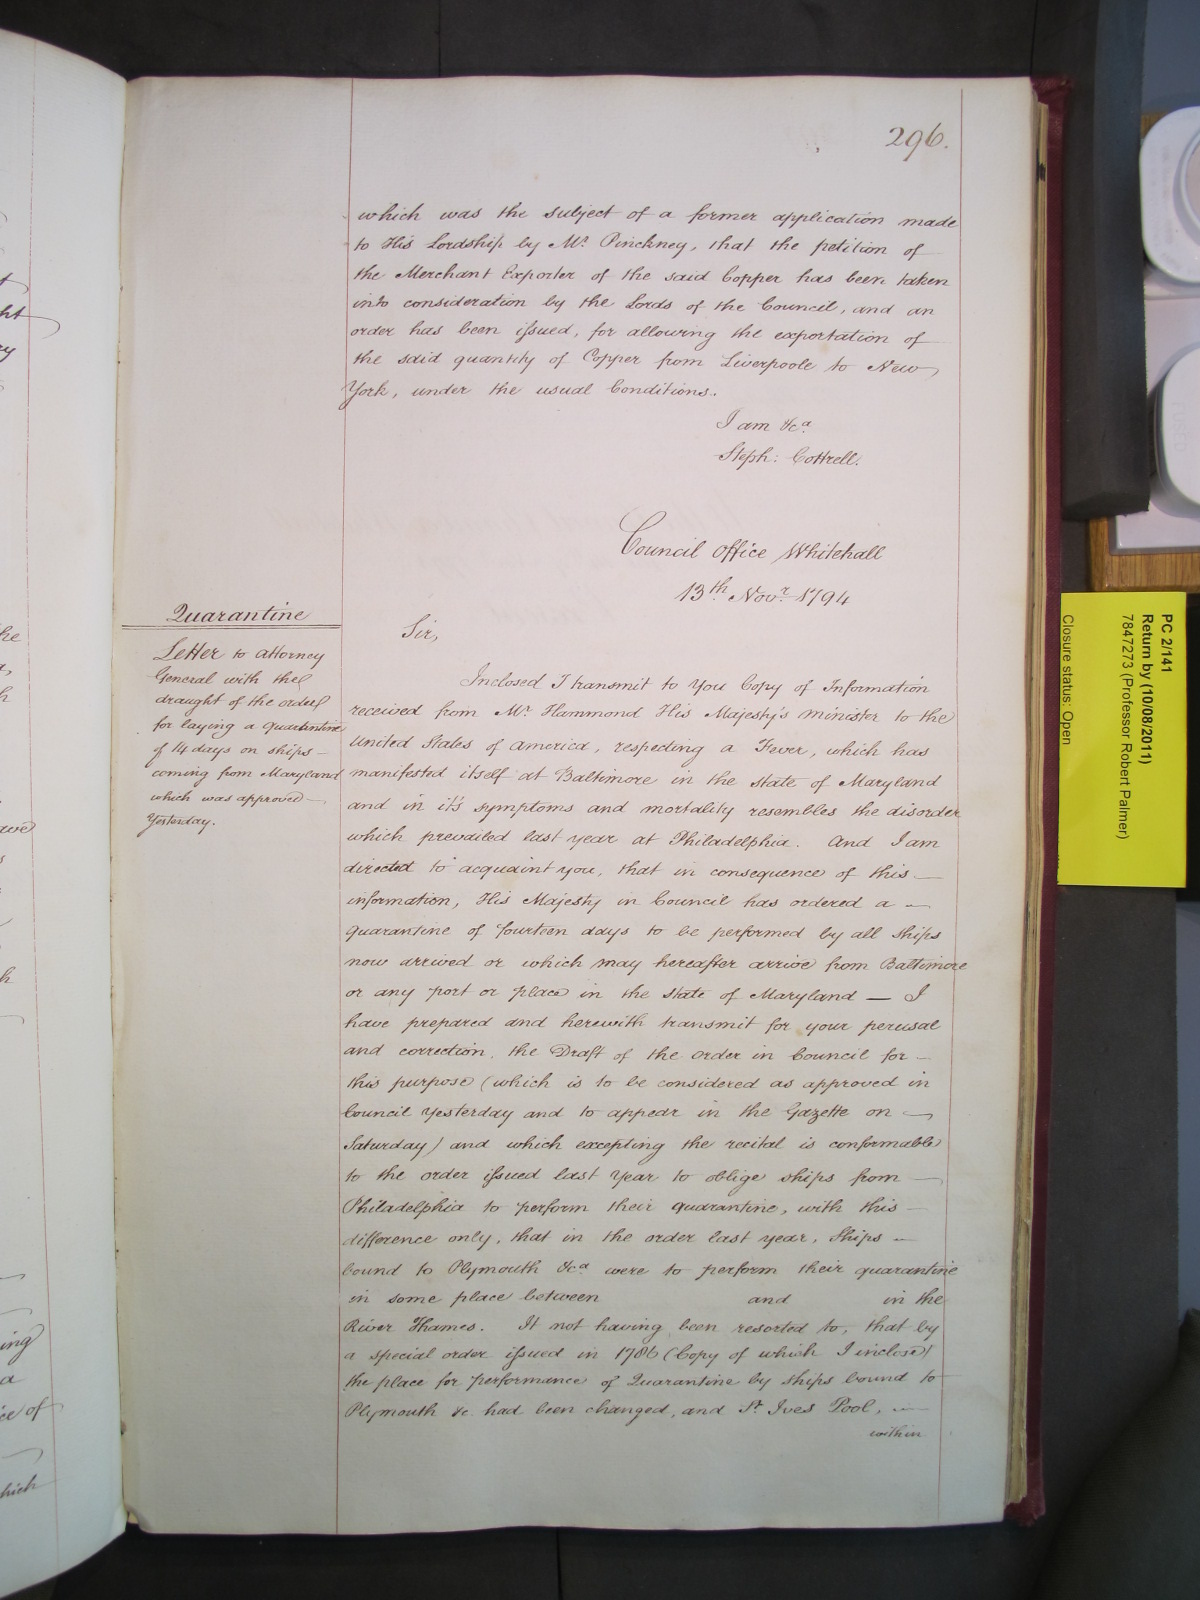 296.
which was the subject of a former application made
to His Lordship by Mr. Pinckney, that the petition of
the Merchant Exporter of the said Copper has been taken
into consideration by the Lords of the Council, and an
order has been issued, for allowing the exportation of
the said quantity of Copper from Liverpoole to New
York, under the usual Conditions.
I am &ca.
Steph: Cottrell.
Council Office Whitehall
13th. Novr. 1794
Quarantine
Letter to Attorney
General with the
draught of the order
for laying a Quarantine
of 14 days on ships
coming from Maryland
which was approved
Yesterday.
Sir,
Inclosed I transmit to You Copy of Information
received from Mr. Hammond His Majesty's minister to the
United States of America, respecting a Fever, which has
manifested itself at Baltimore in the state of Maryland
and in it's symptoms and mortality resembles the disorder
which prevailed last year at Philadelphia. And I am
directed to acquaint you, that in consequence of this
information, His Majesty in Council has ordered a
quarantine of fourteen days to be performed by all ships
now arrived or which may hereafter arrive from Baltimore
or any port or place in the state of Maryland — I
have prepared and herewith transmit for your perusal
and correction, the Draft of the order in Council for
this purpose (which is to be considered as approved in
Council Yesterday and to appear in the Gazette on
Saturday) and which excepting the recital is conformable
to the order issued last Year to oblige ships from
Philadelphia to perform their quarantine, with this
difference only, that in the order last year, Ships
bound to Plymouth &ca were to perform their quarantine
in some place between and in the
River Thames. It not having been resorted to, that by
a special order issued in 1786 (Copy of which I inclose)
the place for performance of Quarantine by ships bound to
Plymouth &c. had been changed, and St. Ives Pool,
within
PC 2/141
Return by (10/08/2011)
7847273 (Professor Robert Palmer)
Closure status: Open